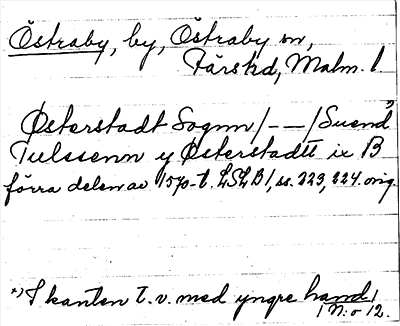 Östraby, by, Östraby sn,
Färs hd, Malm. l
Østerstadt Sognn /--/ Suend*)
Tulssenn y Østerstadtt ix B
förra delen av 1570-t. LSLB 1, ss. 223, 224. orig.
*) I kanten t.v. med yngre hand /
No 12.